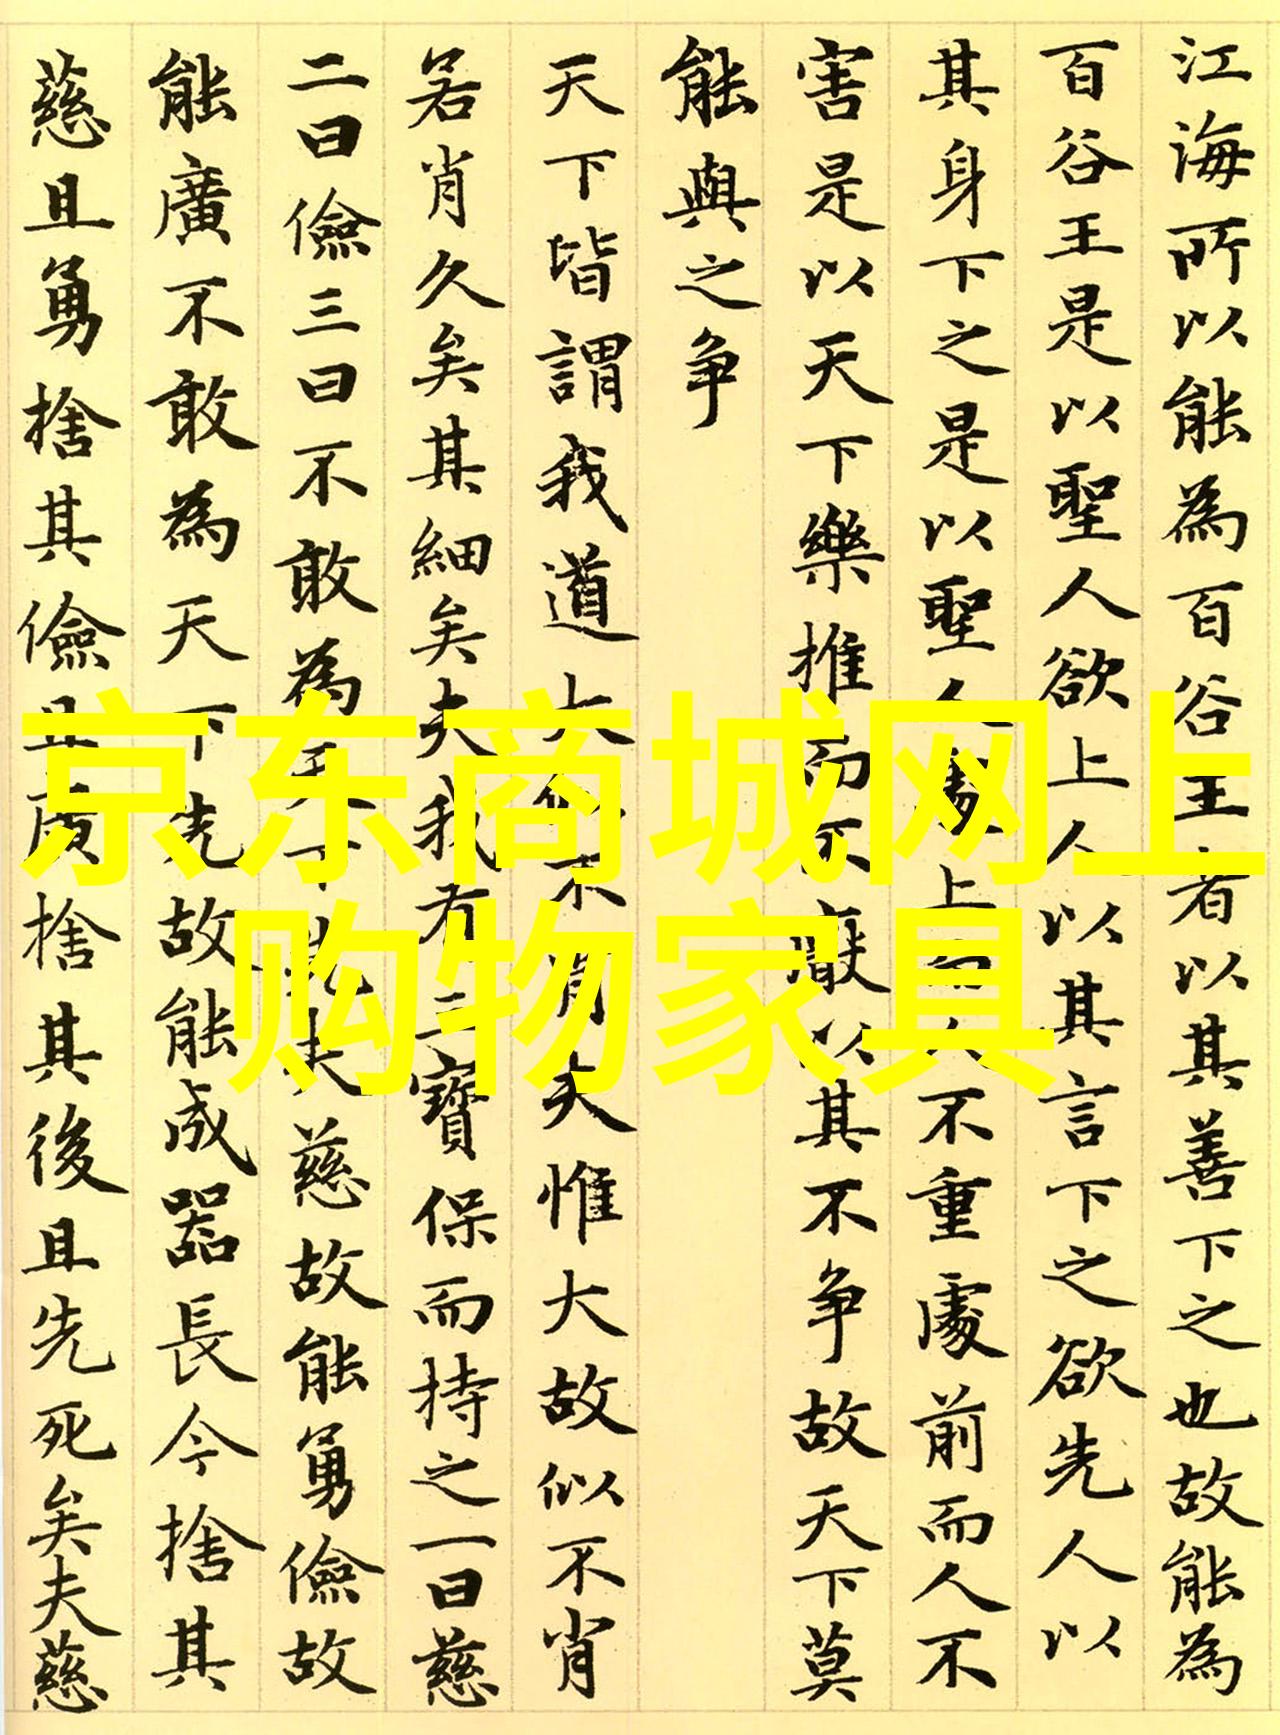 江海所以能為百谷王者以其善下之也故能為
百谷王是以聖人欲上人以其言下之欲先人以
其身下之是以聖人處上而人不重處前而人不
害是以天下樂推而不厭以其不争故天下莫
能與之争
天下皆謂我道大似不肖夫惟大故似不肖
若肖久矣其細矣夫我有三寶保而持之一曰慈
二曰儉三曰不敢為天下先夫慈故能勇儉故
能廣不敢為天下先故能成器長今捨其
慈且勇捨其儉且廣捨其後且先死矣夫慈
京东商城网上
购物家具